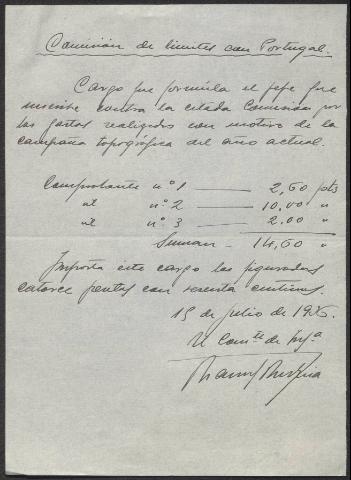 Comisión de limites con Portugal.
Cargo que formula el jefe que
suscribe contra la citada Comisión por
los gastos realizados con motivo de la
campaña topográfica del año actual.
Comprobante nº 1 — 2,60 pts
id nº 2 — 10,00 "
id nº 3 — 2.00 "
Suman - 14,60 "
Importa este cargo las figuradas
catorce pesetas con sesenta centimos.
15 de julio de
El Comte de